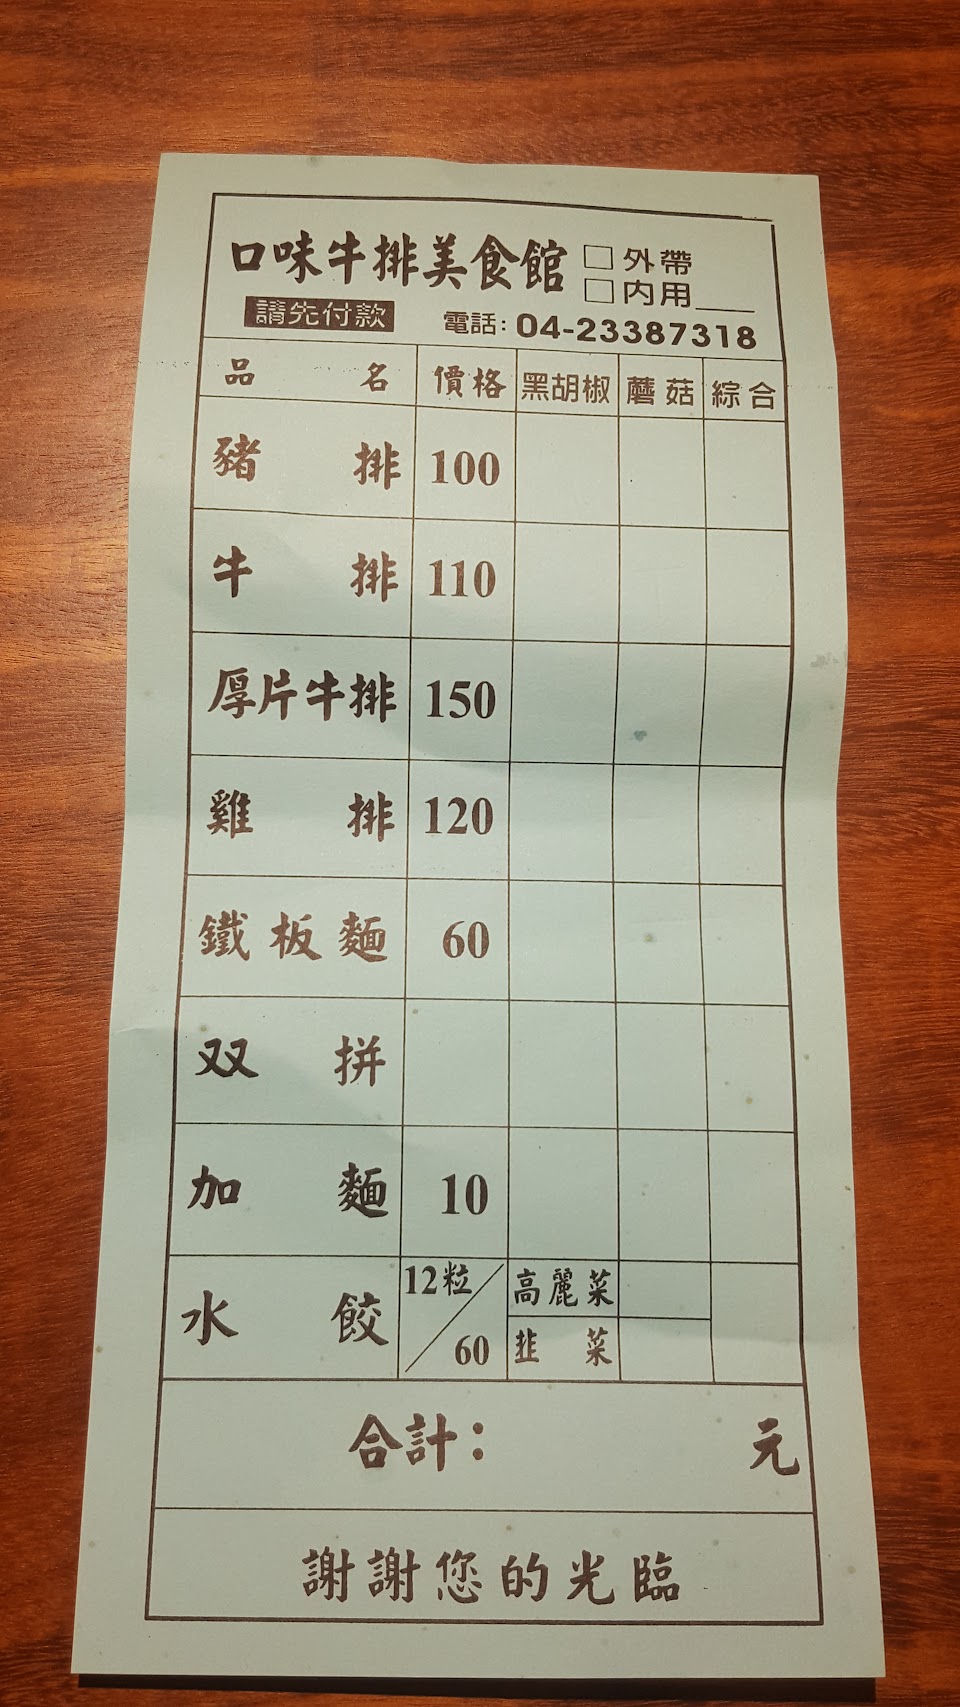 口味牛排美食館 □外帶
□內用___
請先付款 電話：04-23387318
品名 價格 黑胡椒 蘑菇 綜合
豬排 100
牛排 110
厚片牛排 150
雞排 120
鐵板麵 60
双拼
加麵 10
水餃 12粒/60 高麗菜
韭菜
合計： 元
謝謝您的光臨